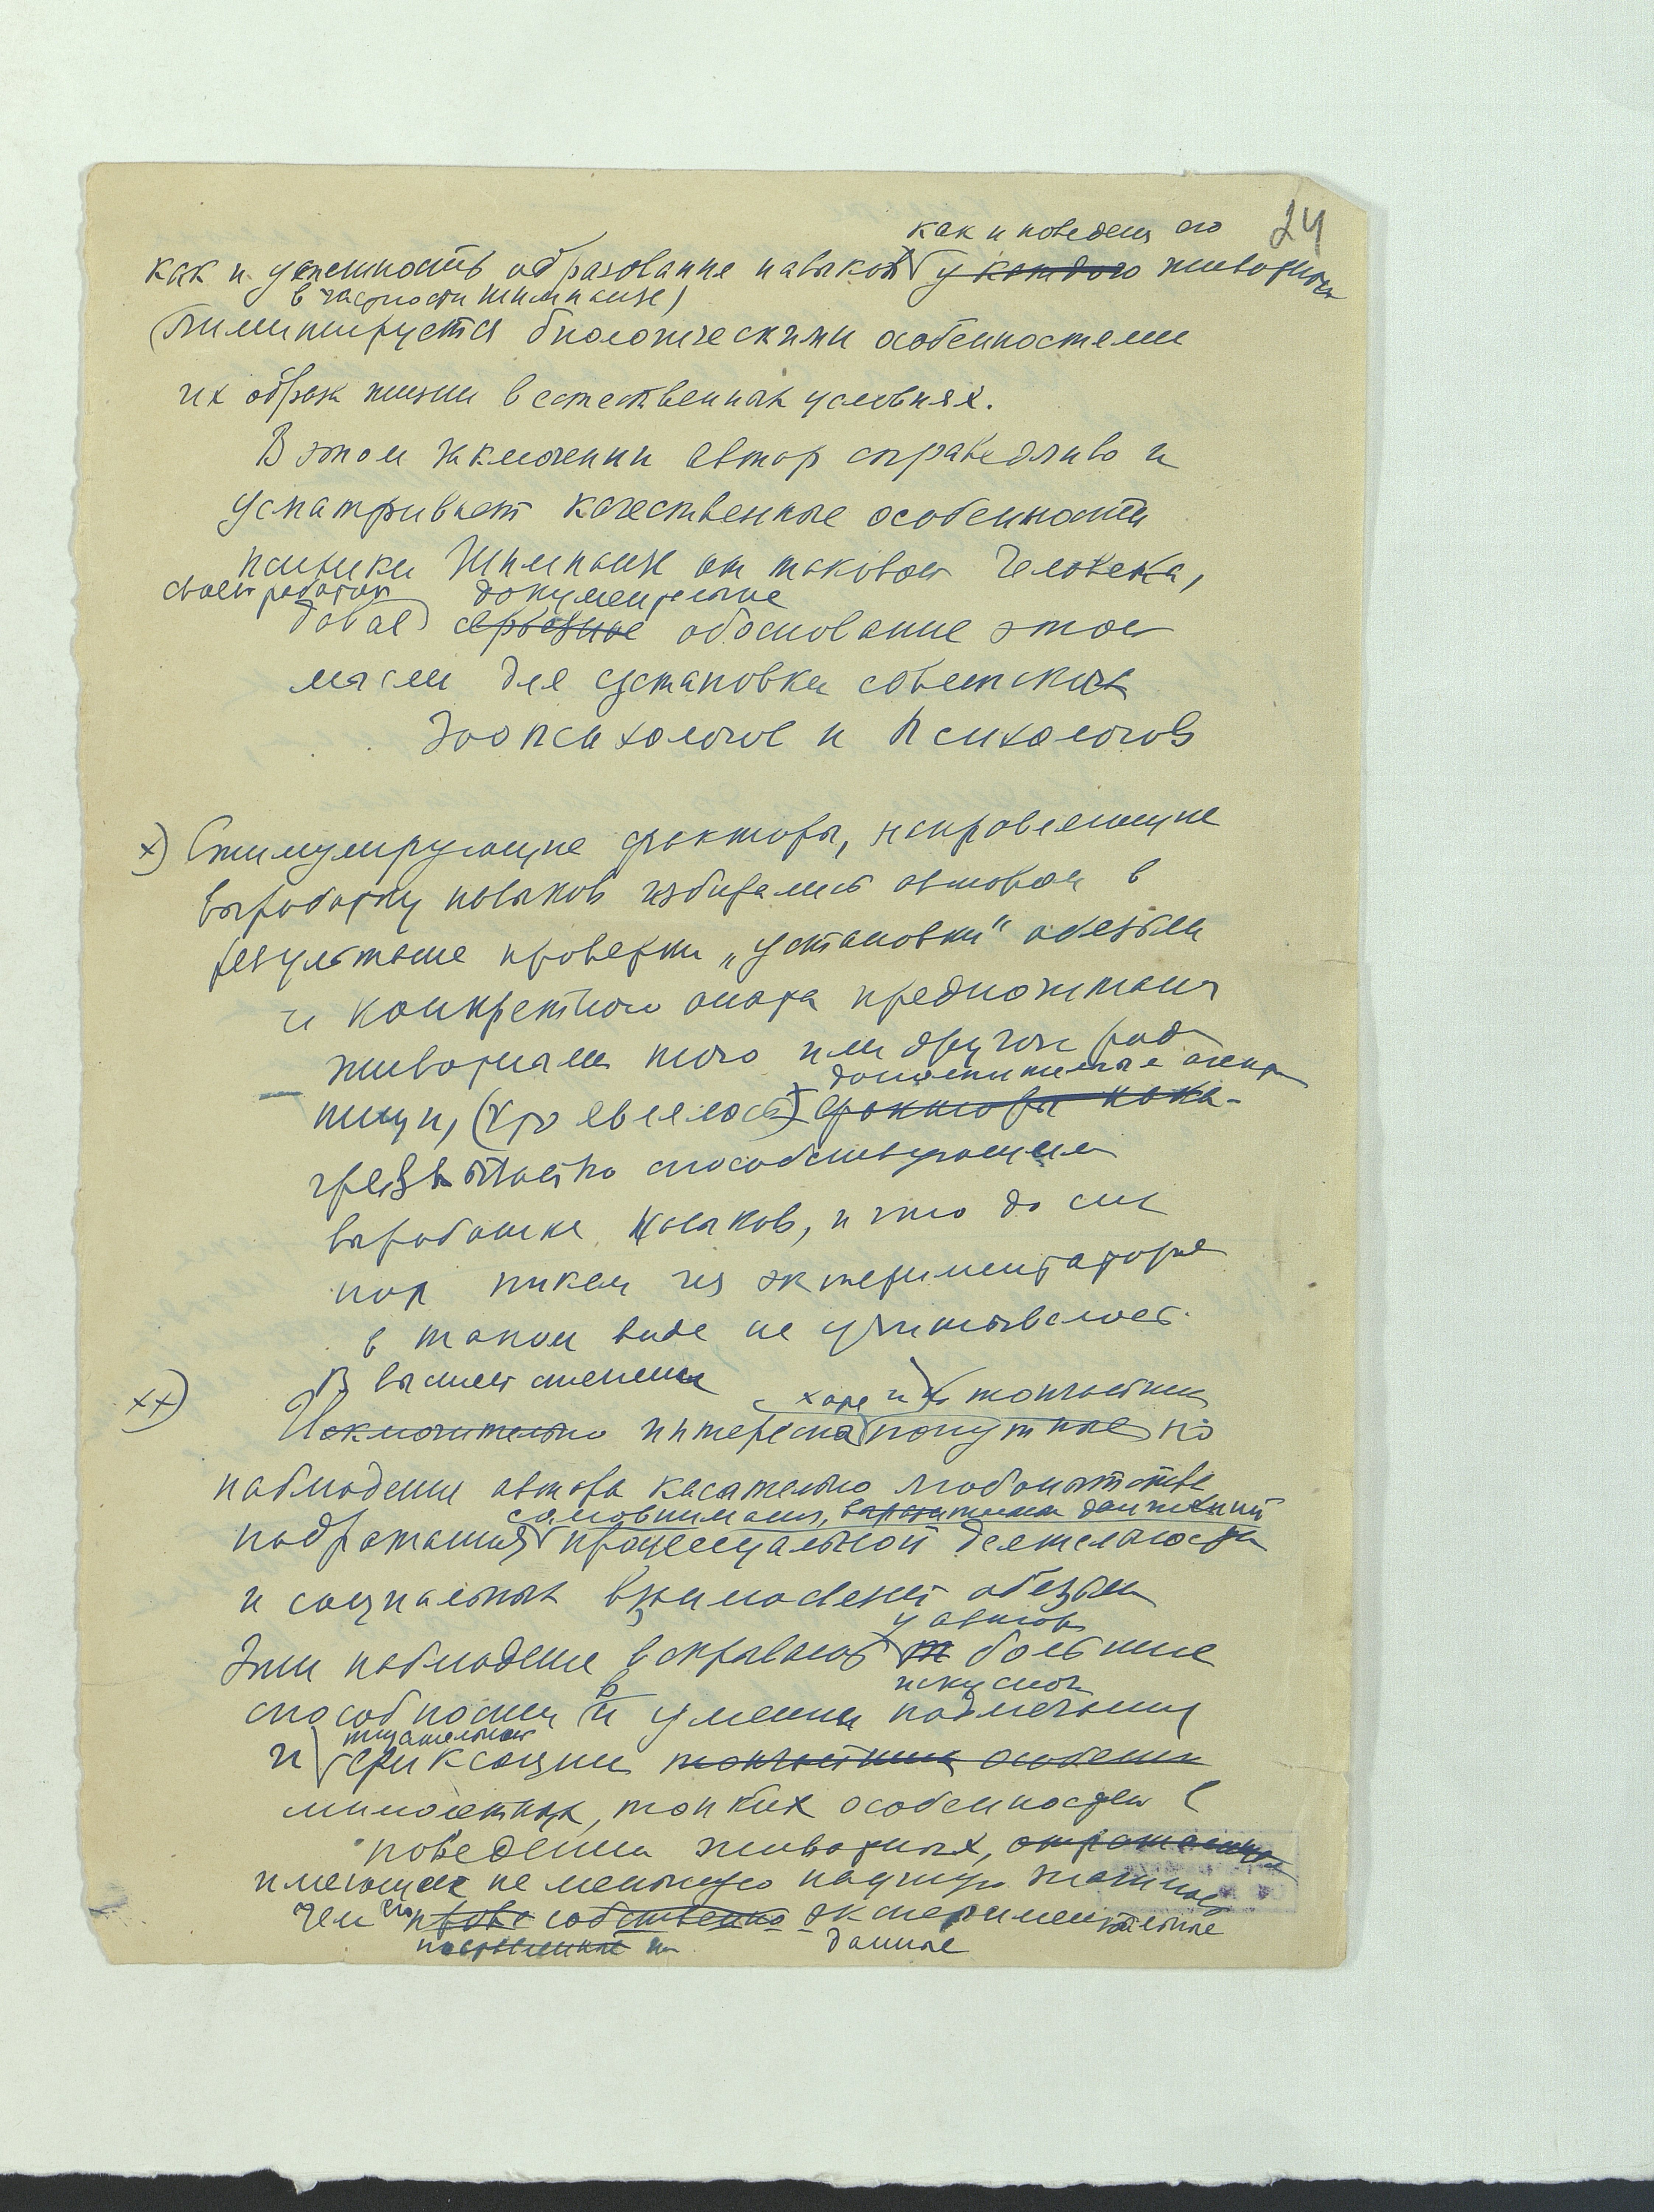 24
как и поведен его
как и успешность образование навыков у каждого животных
в частности шимпанзе)
(лимитируется биологическими особенностями
их образа жизни в естественных условиях.
В этом заключении автор справедливо и
усматривает качественные особенности
психики Шимпанзе от таковой Человека,
своей работой документальное
давая серьезное обоснование этой
мысли для установки советских
Зоопсихологов и Психологов
x) Стимулирующие факторы, направляющие
выработку навыков избирались автором в
результате проверки „установки" обезьян
и конкретного опыта предпочтения
животными того или другого рода
дополнительная
пищи, (что являлось) факторы
чрезвычайно способствующим
выработке навыков, и это до сих
пор никем из экспериментаторов
в таком виде не учитывалось.
В высшей степени
xx) Исключительно интересна попутные
и тончайшие
наблюдения автора касательно любопытства
самовнимания, движений
подражания процессуальной деятельности
и социальных взаимосвязей обезьян
у автора
Эти наблюдения вскрывают большие
искусной
способности и в умении подмечания
тщательной
и фиксации тончайших особенн
мимолетных, тонких особенностей в
поведении животных,
имеющих не меньшую научную значимость
чем его собственно экспериментальные
данные